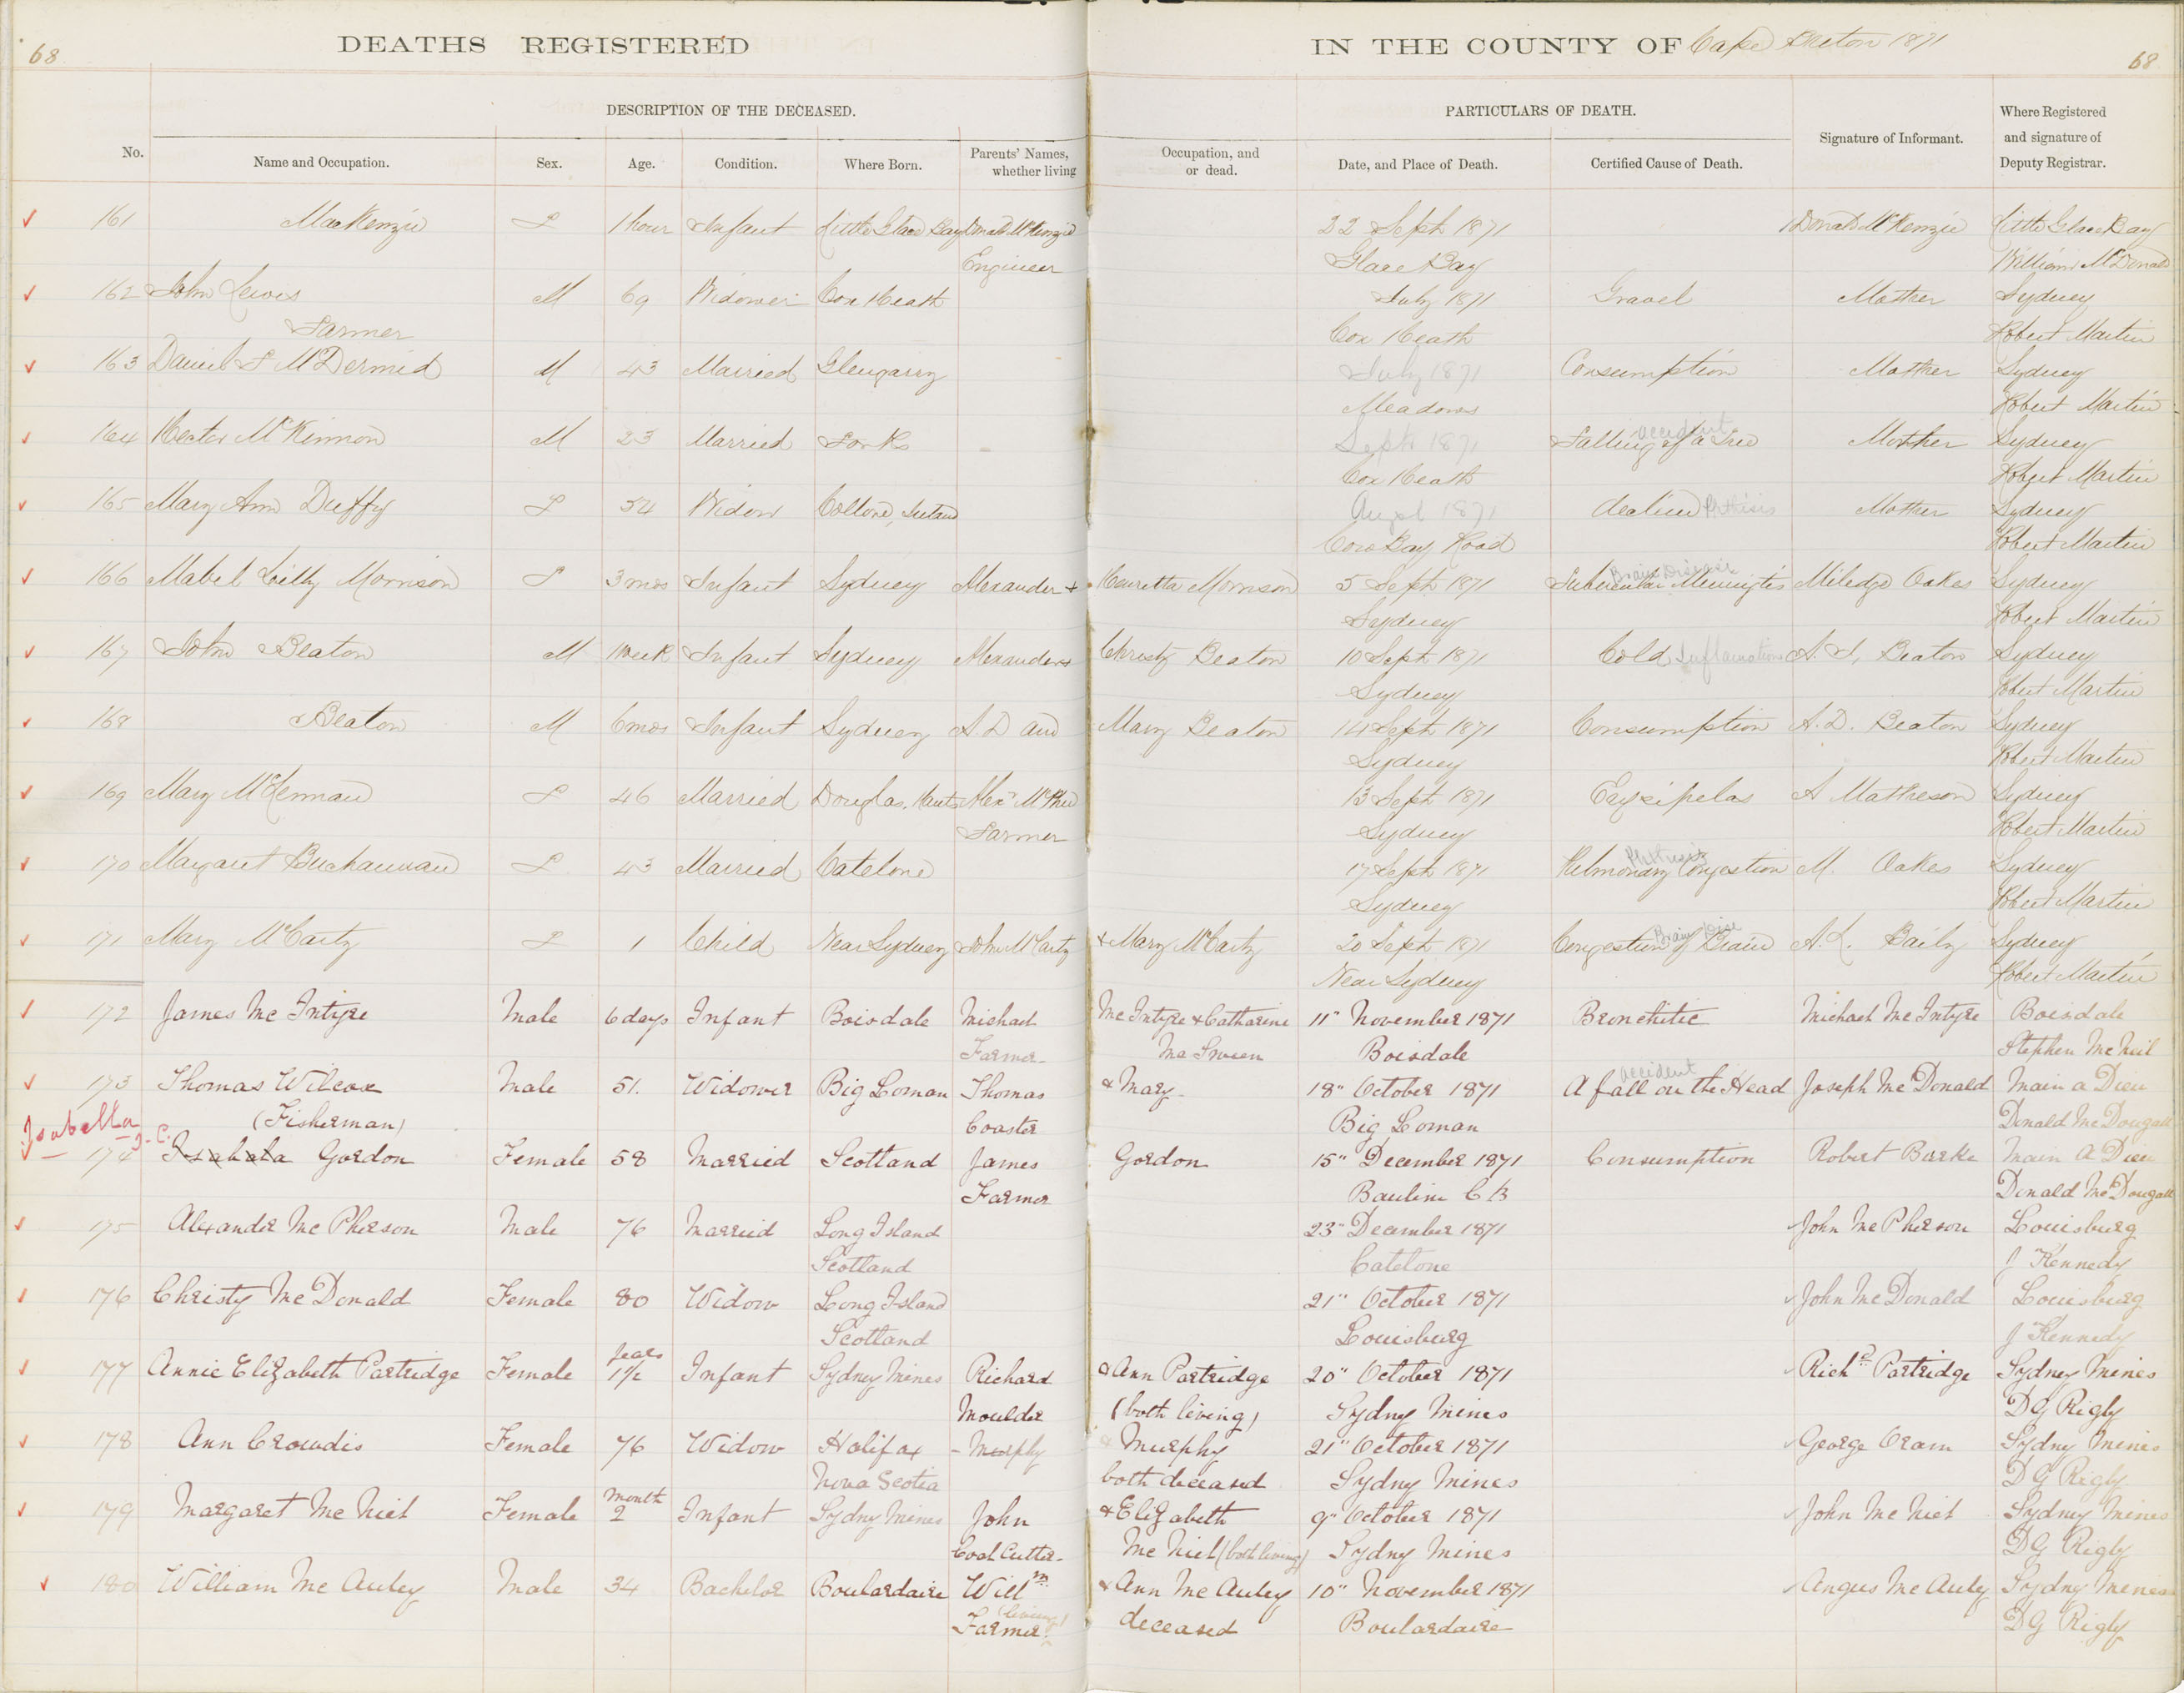 68 DEATHS REGISTERED IN THE COUNTY OF Cape Breton 1871 68
DESCRIPTION OF THE DECEASED. PARTICULARS OF DEATH.
No. Name and Occupation. Sex. Age. Condition. Where Born. Parents' Names, whether living Occupation, and or dead. Date, and Place of Death. Certified Cause of Death. Signature of Informant. Where Registered and signature of Deputy Registrar.
161 MacKenzie F 1 hour Infant Little Glace Bay Donald McKenzie 22 Sept 1871 Donald McKenzie Little Glace Bay
Engineer Glace Bay William McDonald
162 John Lewis M 69 Widower Cox Heath July 1871 Gravel Mother Sydney
Farmer Cox Heath Robert Martin
163 Daniel F McDermid M 43 Married Glengarry July 1871 Consumption Mother Sydney
Meadows Robert Martin
164 Hector McKinnon M 23 Married Forks Sept 1871 accident Falling of a Tree Mother Sydney
Cox Heath Robert Martin
165 Mary Ann Duffy F 54 Widow Ireland August 1871 decline Phthisis Mother Sydney
Cow Bay Road Robert Martin
166 Mabel Lilly Morrison F 3 mos Infant Sydney Alexander + Henretta Morrison 5 Sept 1871 Brain Disease Tubercular Meningtis Miledge Oakes Sydney
Sydney Robert Martin
167 John Beaton M 1 Week Infant Sydney Alexander + Christy Beaton 10 Sept 1871 Cold Inflamation Beaton Sydney
Sydney Robert Martin
168 Beaton M 6 mos Infant Sydney A. D and Mary Beaton 14 Sept 1871 Consumption A. D. Beaton Sydney
Sydney Robert Martin
169 Mary McLennan F 46 Married Douglas, Hants Alexr McPhee 13 Sept 1871 Erysipelas A Matheson Sydney
Farmer Sydney Robert Martin
170 Margaret Buchannan F 43 Married Catelone 17 Sept 1871 Phthisis Pulmonary Congestion M. Oakes Sydney
Sydney Robert Martin
171 Mary McCarty F 1 Child Near Sydney John McCarty + Mary McCarty 20 Sept 1871 Brain Dise Congestion of Brain A. L. Baily Sydney
Near Sydney Robert Martin
172 James Mc Intyre Male 6 days Infant Boisdale Michael Mc Intyre & Catharine 11" November 1871 Bronchitic Michael Mc Intyre Boisdale
Farmer Mc Sween Boisdale Stephen Mc Neil
173 Thomas Wilcox Male 51. Widower Big Loman Thomas & Mary 18" October 1871 accident A fall on the Head Joseph Mc Donald Main a Dieu
(Fisherman) Coaster Big Loman Donald Mc Dougall
Isabella J. C.
174 Isabala Gordon Female 58 Married Scotland James Gordon 15" December 1871 Consumption Robert Burke Main a Dieu
Farmer Bauline C B Donald Mc Dougall
175 Alexander Mc Pherson Male 76 Married Long Island 23" December 1871 John Mc Pherson Louisburg
Scotland Catelone J Kennedy
176 Christy Mc Donald Female 80 Widow Long Island 21" October 1871 John Mc Donald Louisburg
Scotland Louisburg J Kennedy
177 Annie Elizabeth Partridge Female years 1½ Infant Sydney Mines Richard & Ann Partridge 20" October 1871 Richd Partridge Sydney Mines
Moulder (both living) Sydny Mines D G Rigby
178 Ann Crowdis Female 76 Widow Halifax - Murphy & Murphy 21" October 1871 George Oram Sydny Mines
Nova Scotia both deceased Sydny Mines D G Rigby
179 Margaret Mc Niel Female month 2 Infant Sydny Mines John & Elizabeth 9" October 1871 John Mc Niel Sydny Mines
Coal Cutter Mc Niel (both living) Sydny Mines D G Rigby
180 William Mc Auley Male 34 Bachelor Boulardaire Willm & Ann Mc Auley 10" November 1871 Angus Mc Auley Sydny Mines
(living) Farmer deceased Boulardaire D G Rigby